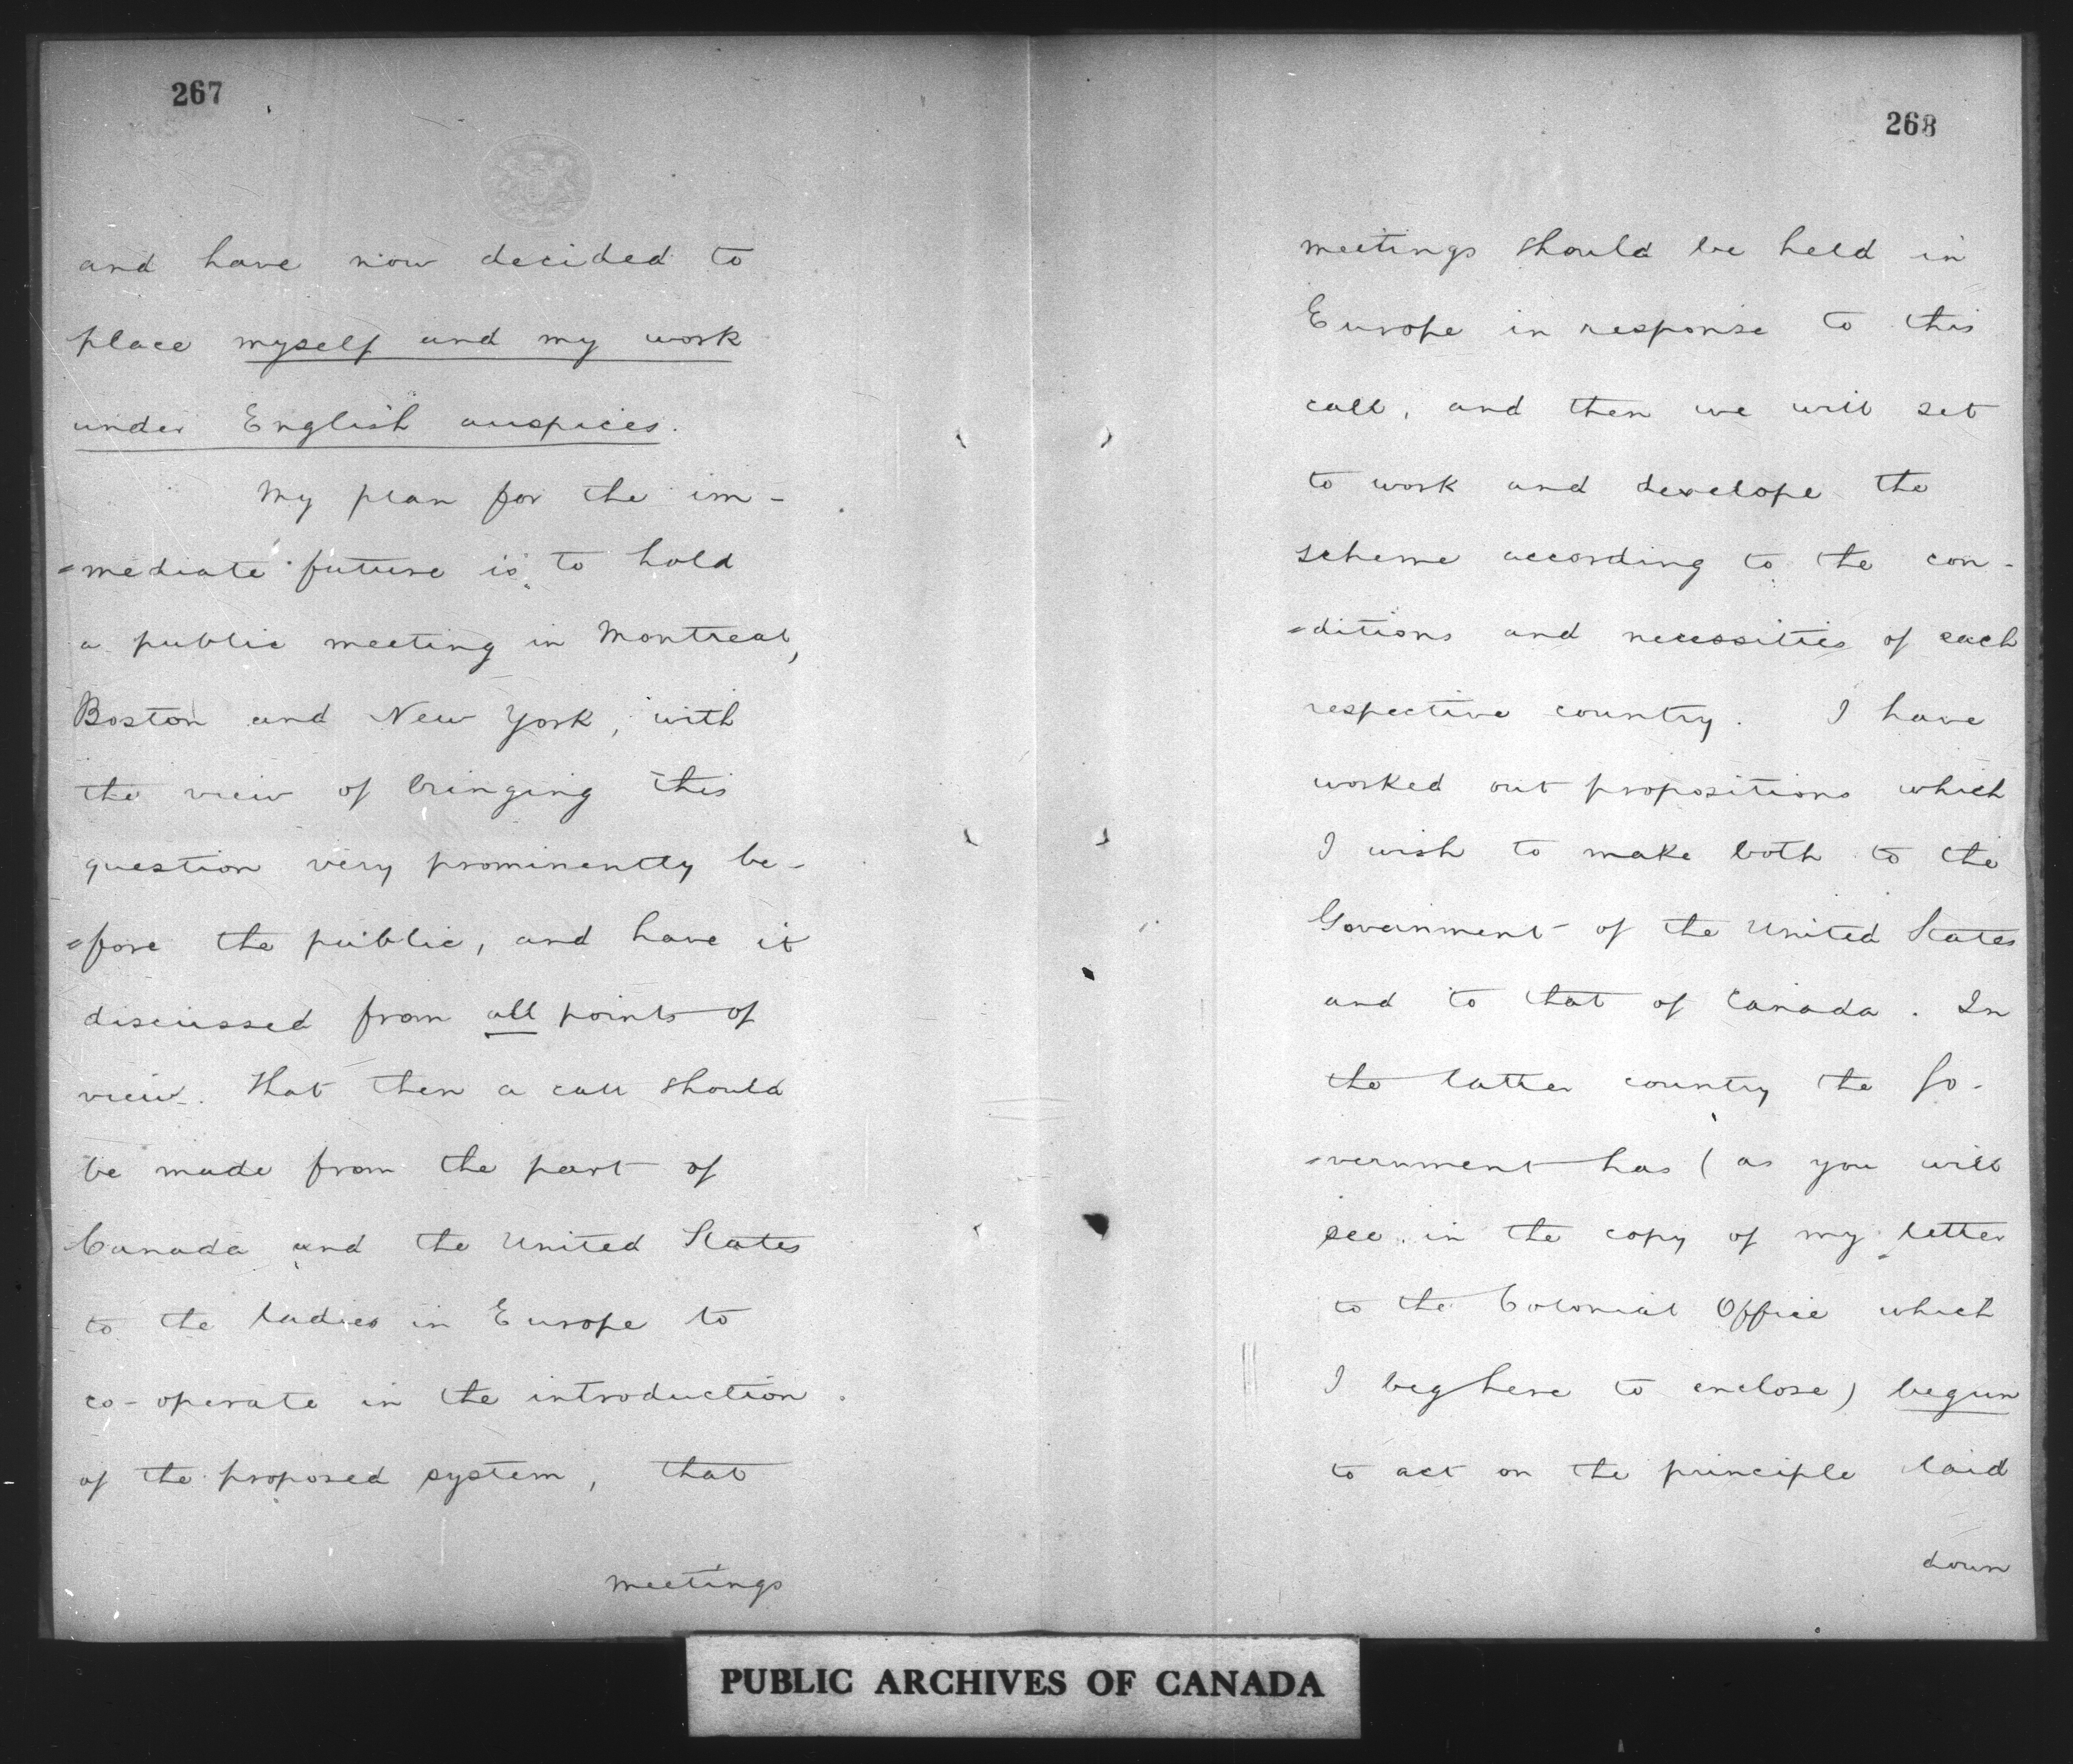 267
and have now decided to
place myself and my work
under English auspices.
My plan for the im-
=mediate future is to hold
a public meeting in Montreal,
Boston and New York, with
the view of bringing this
question very prominently be-
=fore the public, and have it
discussed from all points of
view. That then a call should
be made from the part of
Canada and the United States
to the ladies in Europe to
co-operate in the introduction
of the proposed system, that
meetings
268
meetings should be held in
Europe in response to this
call, and then we will set
to work and develope the
scheme according to the con-
=ditions and necessities of each
respective country. I have
worked out propositions which
I wish to make both to the
Government of the United States
and to that of Canada. In
the latter country the Go-
=vernment has (as you will
see in the copy of my letter
to the Colonial Office which
I beg here to enclose) begun
to act on the principle laid
down
PUBLIC ARCHIVES OF CANADA